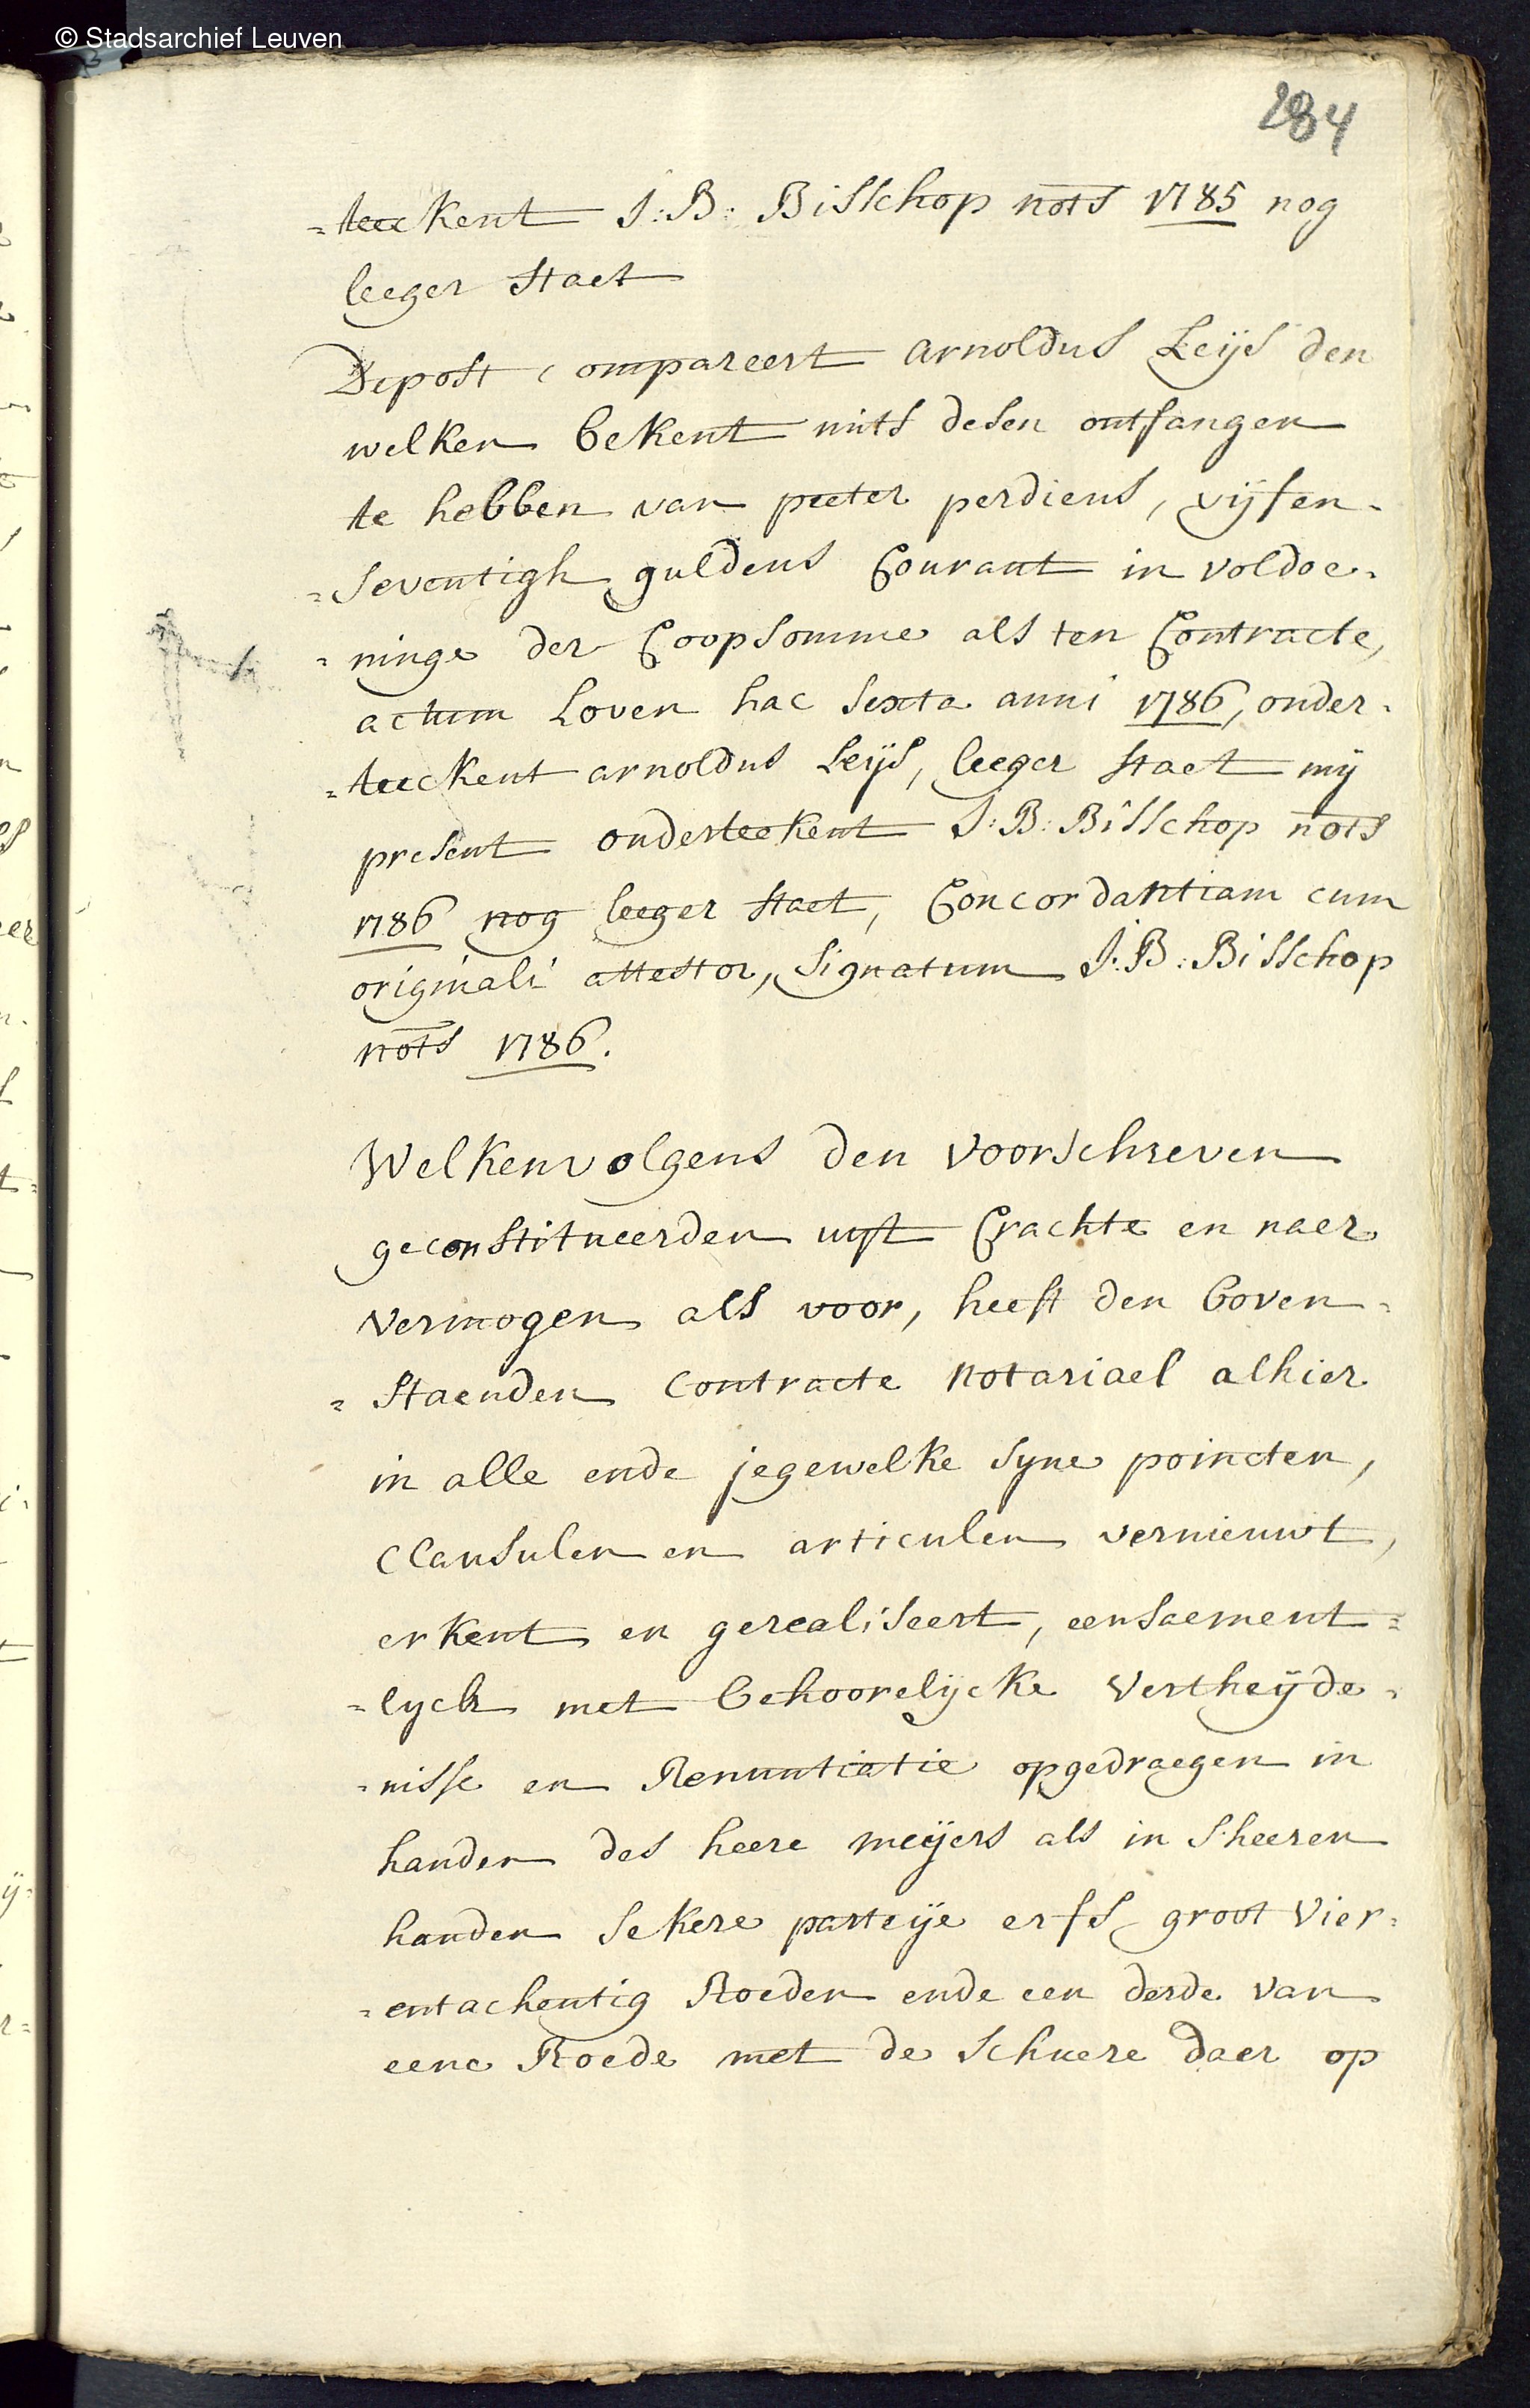 © Stadsarchief Leuven
284
=teeckent J: B: Bisschop nots 1785 nog
leeger staet
Depost compareert arnoldus Leijs den
welken bekent mits desen ontfangen
te hebben van peeter perdiens, vijfen=
=seventigh guldens Courant in voldoe=
=ninge der Coopsomme als ten Contracte,
actum Loven hac sexta anni 1786, onder=
=teeckent arnoldus Leijs, leeger staet mij
present onderteekent J: B: Bisschop nots
1786 nog leeger staet, Concordantiam cum
originali attestor, signatum J: B: Bisschop
nots 1786.
Welkenvolgens den voorschreven
geconstitueerden uyt Crachte en naer
vermogen als voor, heeft den boven=
=staenden contracte notariael alhier
in alle ende jegewelke syne poincten,
clausulen en articulen vernieuwt,
erkent en gerealiseert, eensaement=
=lyck met behoorelijcke vertheijde=
=nisse en Renuntiatie opgedraegen in
handen des heere meijers als in s'heeren
handen sekere parteije erfs groot vier=
=entachentig Roeden ende een derde van
eene Roede met de schuere daer op